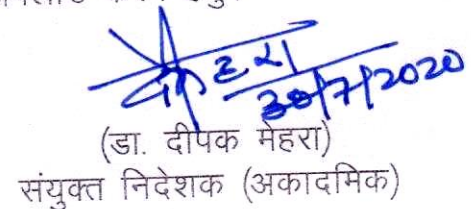 30/7/2020
(डा. दीपक मेहरा)
संयुक्त निदेशक (अकादमिक)